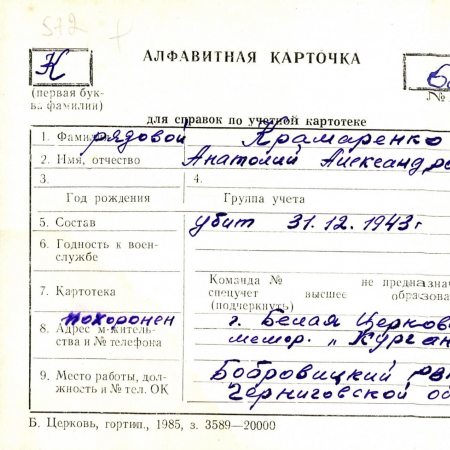 572
К
АЛФАВИТНАЯ КАРТОЧКА
(первая бук-
ва фамилии)
№
для справок по учетной картотеке
1. Фамилия рядовой Крамаренко
2. Имя, отчество Анатолий Александро
3.
4.
Год рождения
Группа учета
5. Состав убит 31.12.1943г
6. Годность к воен-
службе
7. Картотека
Команда № не предназна
спецучет высшее образова
(подчеркнуть)
похоронен
8. Адрес м-житель-
ства и № телефона
г. Белая Церковь
мемор. „Курган
9. Место работы, дол-
жность и № тел. ОК
Бобровицкий РВК
Черниговской об
Б. Церковь, гортип., 1985, з. 3589—20000